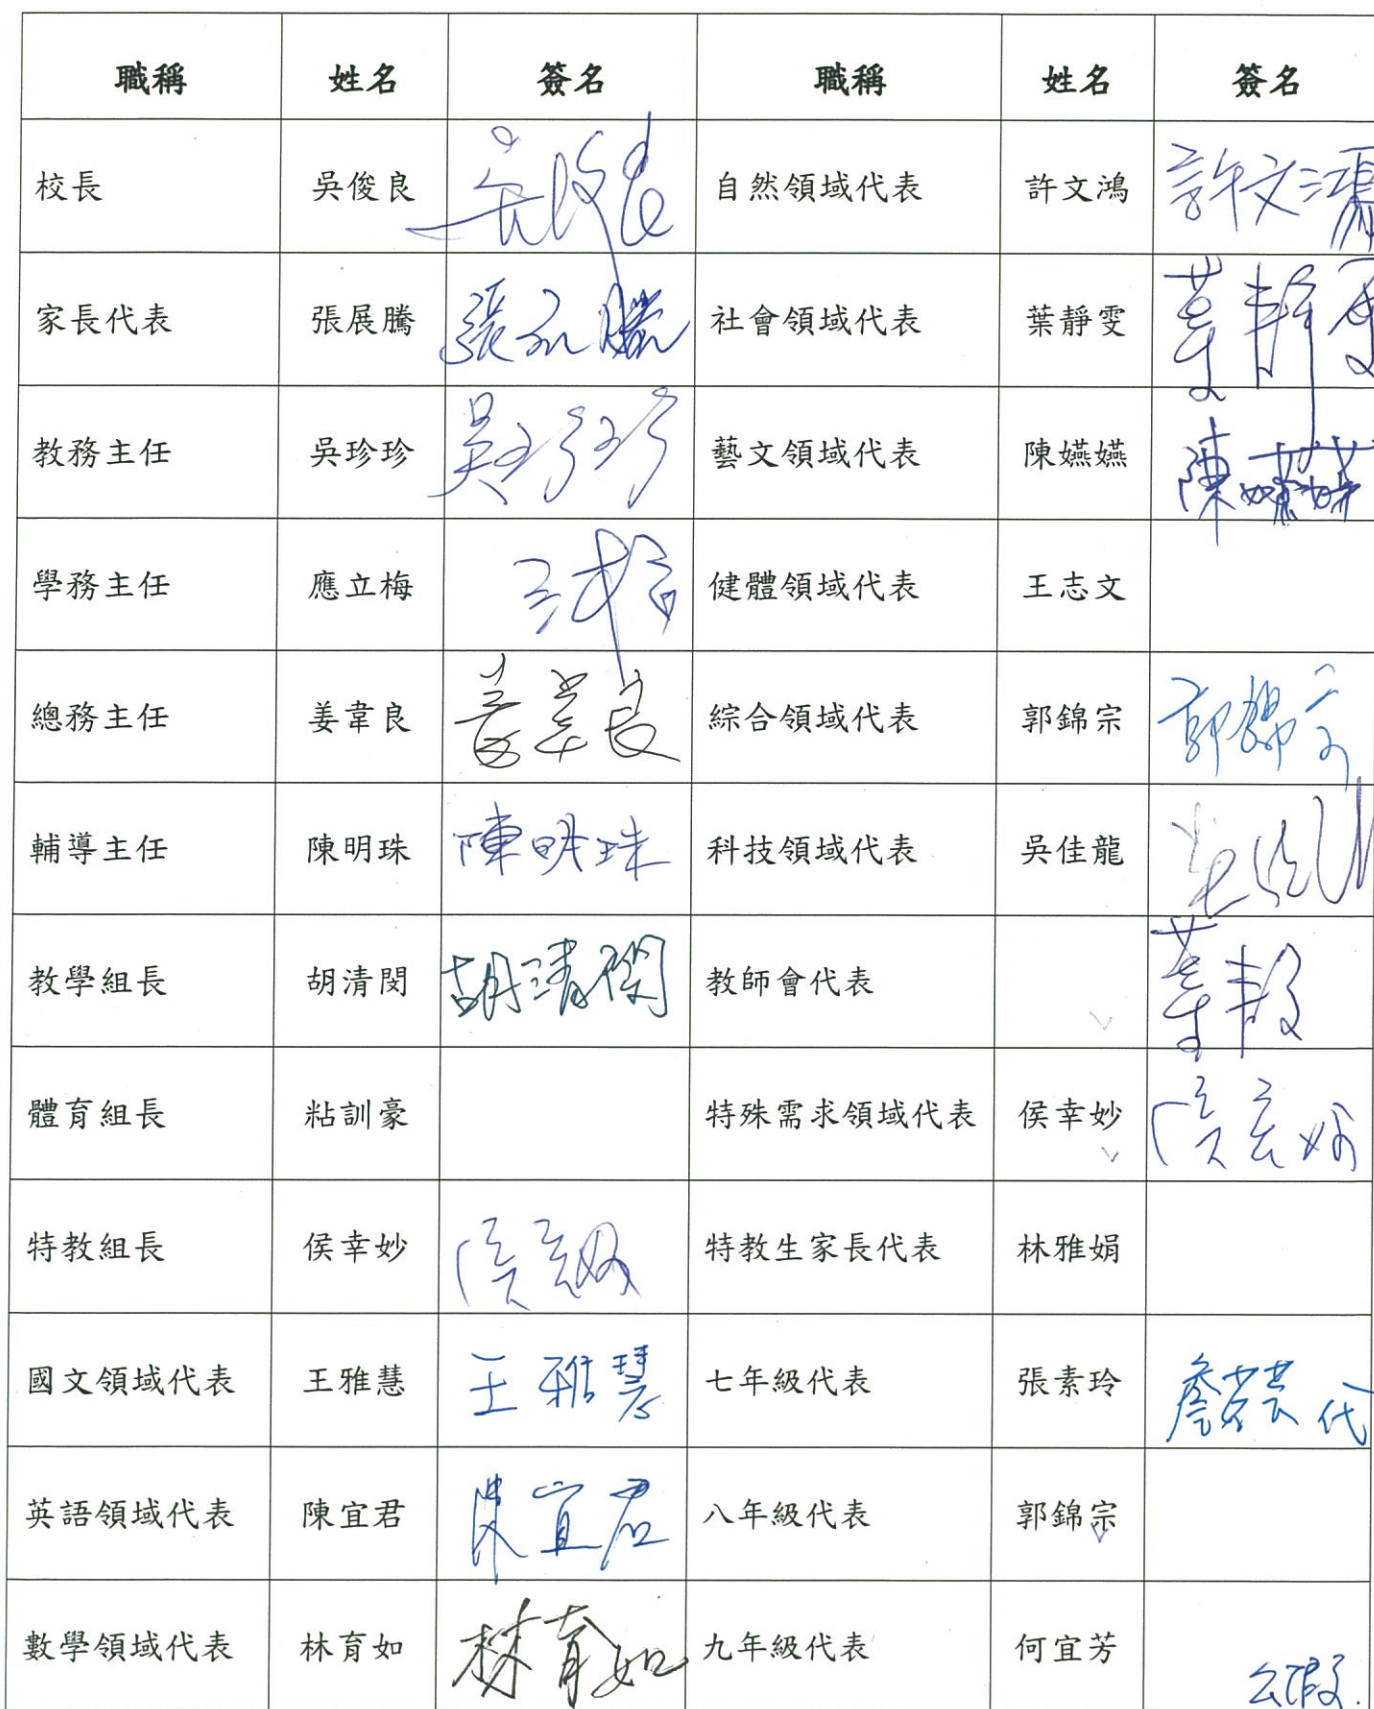 職稱 姓名 簽名 職稱 姓名 簽名
校長 吳俊良 吳俊良 自然領域代表 許文鴻 許文鴻
家長代表 張展騰 張展騰 社會領域代表 葉靜雯 葉靜雯
教務主任 吳珍珍 吳珍珍 藝文領域代表 陳嬿嬿 陳嬿嬿
學務主任 應立梅 健體領域代表 王志文
總務主任 姜韋良 姜韋良 綜合領域代表 郭錦宗 郭錦宗
輔導主任 陳明珠 陳明珠 科技領域代表 吳佳龍 吳佳龍
教學組長 胡清閔 胡清閔 教師會代表
體育組長 粘訓豪 特殊需求領域代表 侯幸妙 侯幸妙
特教組長 侯幸妙 侯幸妙 特教生家長代表 林雅娟
國文領域代表 王雅慧 王雅慧 七年級代表 張素玲 代
英語領域代表 陳宜君 陳宜君 八年級代表 郭錦宗
數學領域代表 林育如 林育如 九年級代表 何宜芳 公假